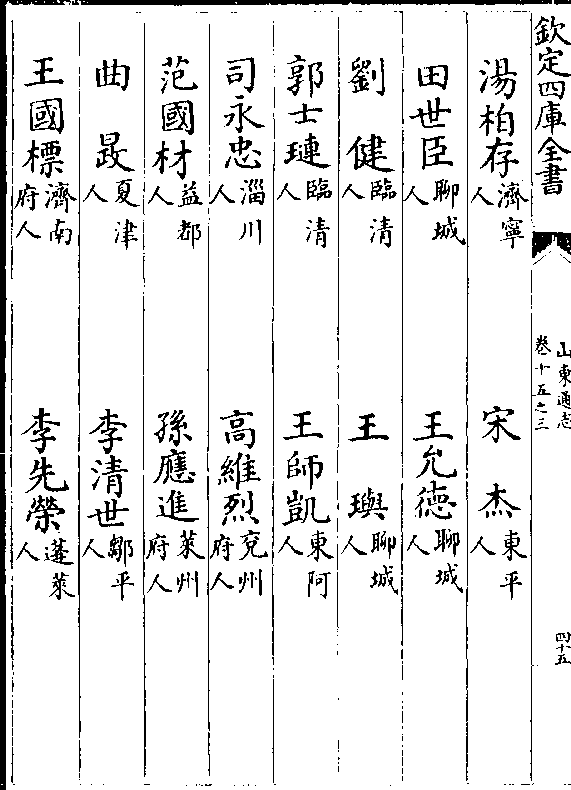 欽定四庫全書
山東通志
卷十五之三
四十五
湯柏存濟寧人
宋杰東平人
田世臣聊城人
王允德聊城人
劉健臨清人
王璵聊城人
郭士璉臨清人
王師凱東阿人
司永忠淄川人
高維烈兖州府人
范國材益都人
孫應進萊州府人
曲最夏津人
李清世鄒平人
王國標濟南府人
李先榮蓬萊人